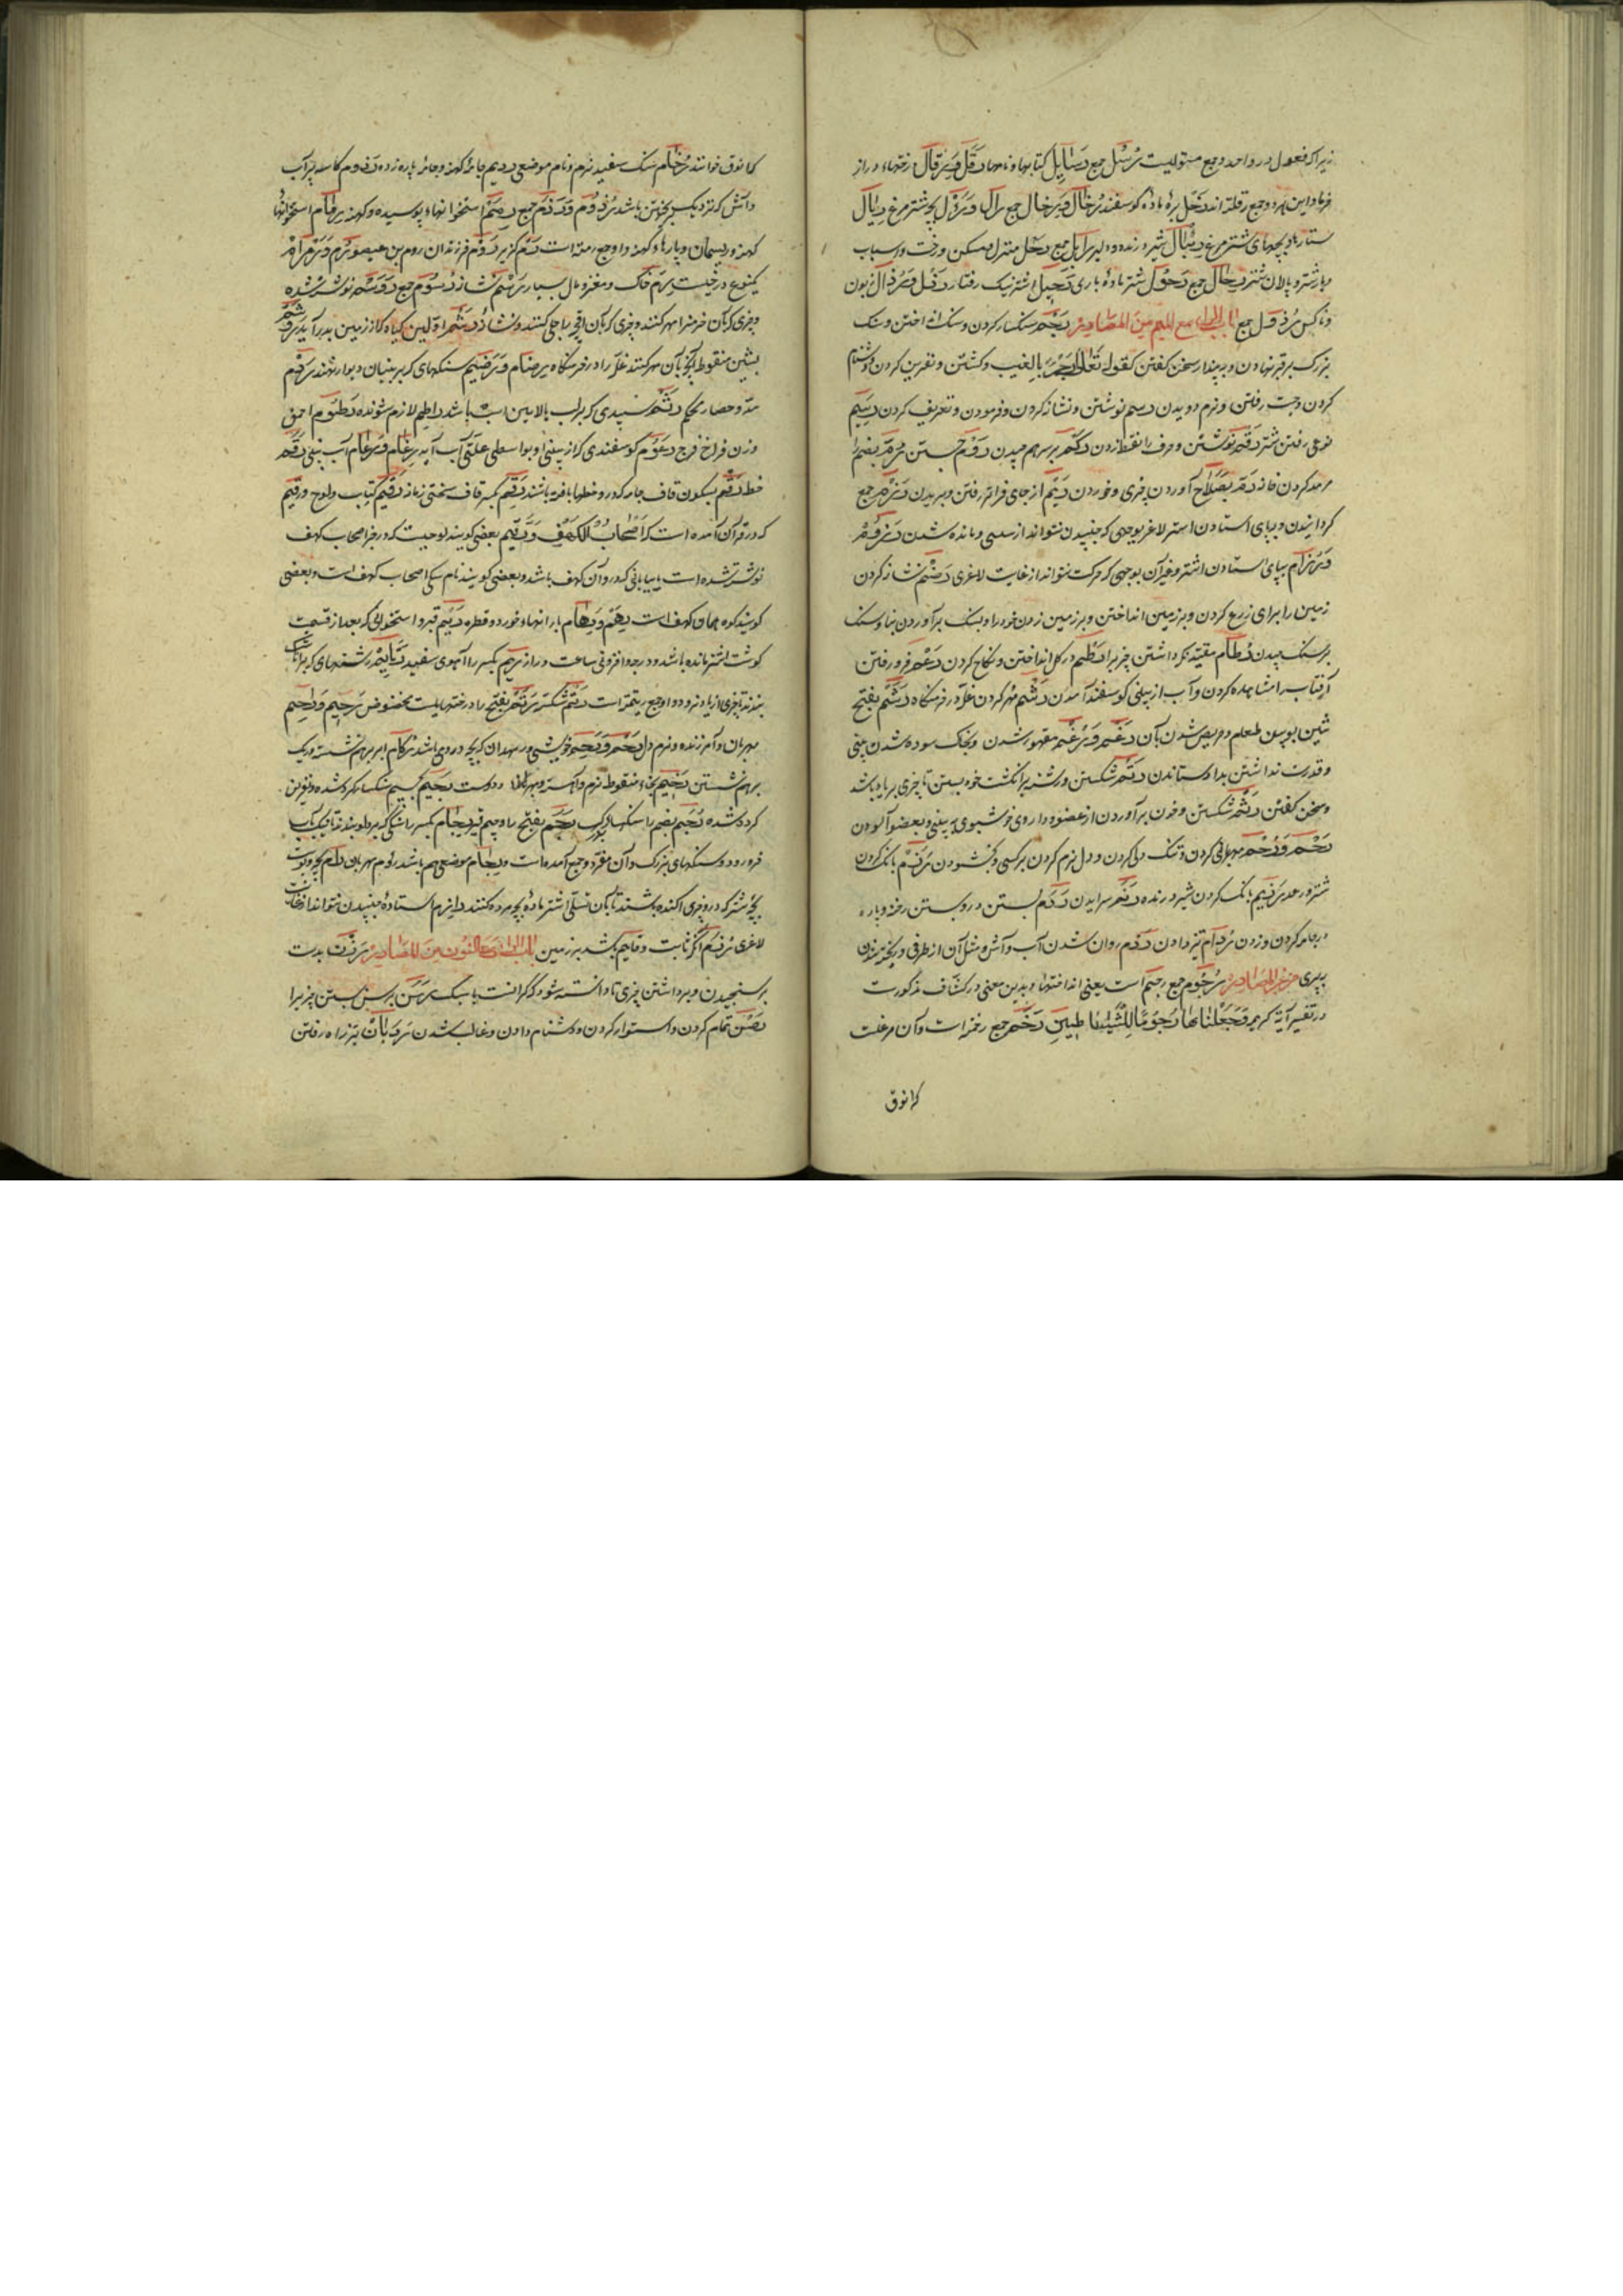 زیرا که فعول در واحد و جمع مستولیست رُسُل جمع رَسَایِل کتابها و نامها رَقْل وَ رِقَال درختهاء دراز
خرما و این نهر دو جمع رقلة اند رَخِل بره مادهٔ گوسفند رُخَال وَ رِخَال جمع رَأل بچه شترمرغ رِئَال
ستارها و بچهای شترمرغ رِئْبَال شیر درنده جمع رَحْل منزل و مسکن و رخت و اسباب
و بار شتر و پالان شتر رِحَال جمع رَحُول شتر مادهٔ باری رَحِیل اشتر نیک رفتار رَذْل وَ رُذَال زبون
و ناکس رُذُل جمع باب الراء مع المیم من المصادر رَجْم سنگسار کردن و سنگ انداختن و سنگ
بزرگ بر قبر نهادن و به پندار سخن گفتن کقوله تعالی رَجْمًا بِالغیب و کشتن و نفرین کردن و دشنام
کردن و جست رفتن و نرم دویدن رسم نوشتن و نشانه کردن و فرمودن و تعریف کردن رَسِیم
نوعی رفتن شتر رَقْم نوشتن و حرف را نقطه زدن رَکْم بر سر هم چیدن
مرمه کردن خانه رَمّ بصلاح آوردن چیزی و خوردن رَیْم از جای فراتر رفتن و بریدن
گردانیدن و بپای استادن اشتر لاغر بوجهی که جنبیدن نتواند از سستی و مانده شدن
بپای استادن اشتر و غیر آن بوجهی که حرکت نتواند از غایت لاغری رَضْم نشانه کردن
زمین را برای زرع کردن و بر زمین انداختن و بر زمین زدن خود را و بسنگ برآوردن بنا و سنگ
بر سنگ چیدن رُطَام مقید نگه داشتن چیزی را رَطْم در گل انداختن و نکاح کردن رَعْم فرو رفتن
آفتاب را مشاهده کردن و آب از بینی گوسفند آمدن رَشْم مهر کردن غله در خرمنگاه رَشَم بفتح
شین بوییدن طعام و حریص شدن بآن رَغْم وَ رُغْم مقهور شدن و بخاک سوده شدن بینی
و قدرت نداشتن بداد ستاندن رَتْم شکستن و رشته بر انگشت خود بستن تا چیزی بر یاد باشد
و سخن گفتن رَثْم شکستن و خون برآوردن از عضو و داروی خوشبوی به بینی و بعضو آلودن
رَحْم وَ رُحْم مهربانی کردن و تنگ دلی کردن و دل نرم کردن بر کسی و بخشودن بانگ کردن
شتر و رعد بانگ کردن شیر درنده رَنَم سراییدن رَدْم بستن در و بستن رخنه و پاره
در جامه کردن و زدن رُدَام تیز دادن رَذْم روان شدن آب و آتش و مثل آن از طرفی
بپیری من غیر المصادر رُجُوم جمع رجم است یعنی انداختها و بدین معنی در کشاف مذکورست
در تفسیر آیة کریمه وَجَعَلْنَاهَا رُجُومًا لِلشَّیَاطِینِ رَخَم جمع رخمة است و آن مرغیست
که انوق
که انوق خوانند رُخَام سنگ سفید نرم و نام موضعی ردیم جامهٔ کهنه و جامهٔ پاره زده رَذُوم کاسه پر آب
و آتش که نزدیک بریختن باشد رُذُم وَ رَذَم جمع رِمَم استخوانهاء پوسیده و کهنه رِمَام استخوانهاء
کهنه و ریسمان و پارها و کهنه و او جمع رمّة است رَمّ گزیر رُوم فرزندان روم بن عیصو
یکنوع درختست رِمّ خاک و مغز و مال بسیار رَسْم نشانه رُسُوم جمع رَوْسَم نوشته شده
و چیزی که بآن خرمن را مهر کنند و چیزی که بآن اقچه را جلی کنند و نشانه رَشَم اولین گیاه که از زمین بدر آید
بشین منقوطه آنچه بآن مهر کنند غله را در خرمنگاه رِضَام وَ رَضِیم سنگهای که بر بنیان دیوار نهند
سد و حصار محکم رَثْم سپیدی که بر لب بالایین اسپ باشد راطم لازم شونده رَطُوم احمق
و زن فراخ فرج رَعُوم گوسفندی که از بینی او بواسطی علتی آب آید رِغَام وَ رُغَام آب بینی رَقْم
خط رَقْم بسکون قاف جامه که درو خطها بافته باشند رَقِم بکسر قاف سختی زمانه رَقِیم کتاب و لوح و رقیم
که در قرآن آمده است که أَصْحَابَ الْکَهْفِ وَالرَّقِیم بعضی گویند لوحیست که در خبر اصحاب کهف
نوشته شده است یا بیابانی که درو آن کهف باشد و بعضی گویند نام سگ اصحاب کهف است و بعضی
گویند کوه همان کهف است رِهَم وَ رِهَام بارانهاء خورد و قطره رَیْم قبر و استخوانی که بعد از قسمت
گوشت اشتر مانده باشد و درجه و افزونی ساعت دراز رِیم بکسر را آهوی سفید رَتَایِم رشتهای که بر انگشت
بندند تا چیزی از یاد نرود و او جمع رتیمة است رَتِیم شکسته رَتَم بفتح را درختهایست مخصوص رَحِیم وَ رَاحِم
مهربان و آمرزنده و نرم دل رَحِم وَ رِحْم خویشی و زهدان که بچه درو می باشد رُکَام ابر بر هم نشسته و ریگ
بر هم نشستن رَخِیم بخاء منقوطه نرم و آهسته و دوست رَجِیم بجیم سنگسار کرده شده و نفرین
کرده شده رُجَم بضم را سنگهاء بزرگ رَجَم بفتح را و جیم قبر رِجَام بکسر را سنگی که بر دلو بندند تا نیک بآب
فرو رود و سنگهای بزرگ و آن مفرد و جمع آمده است و رجام موضعی هم باشد رؤم مهربان
بچه شتر که درو چیزی آکنده باشند تا بآن تسلی اشتر ماده بچه مرده کنند رازم استاده جنبیدن نتواند از غایت
لاغری بر زمین باب الراء مع النون من المصادر رَزْن بدست
بر سنجیدن و برداشتن چیزی تا دانسته شود که گرانست یا سبک رَسَن برسن بستن چیزی را
رَصْن تمام کردن و استوار کردن و دشنام دادن و غالب شدن رَدَیَان تیز راه رفتن